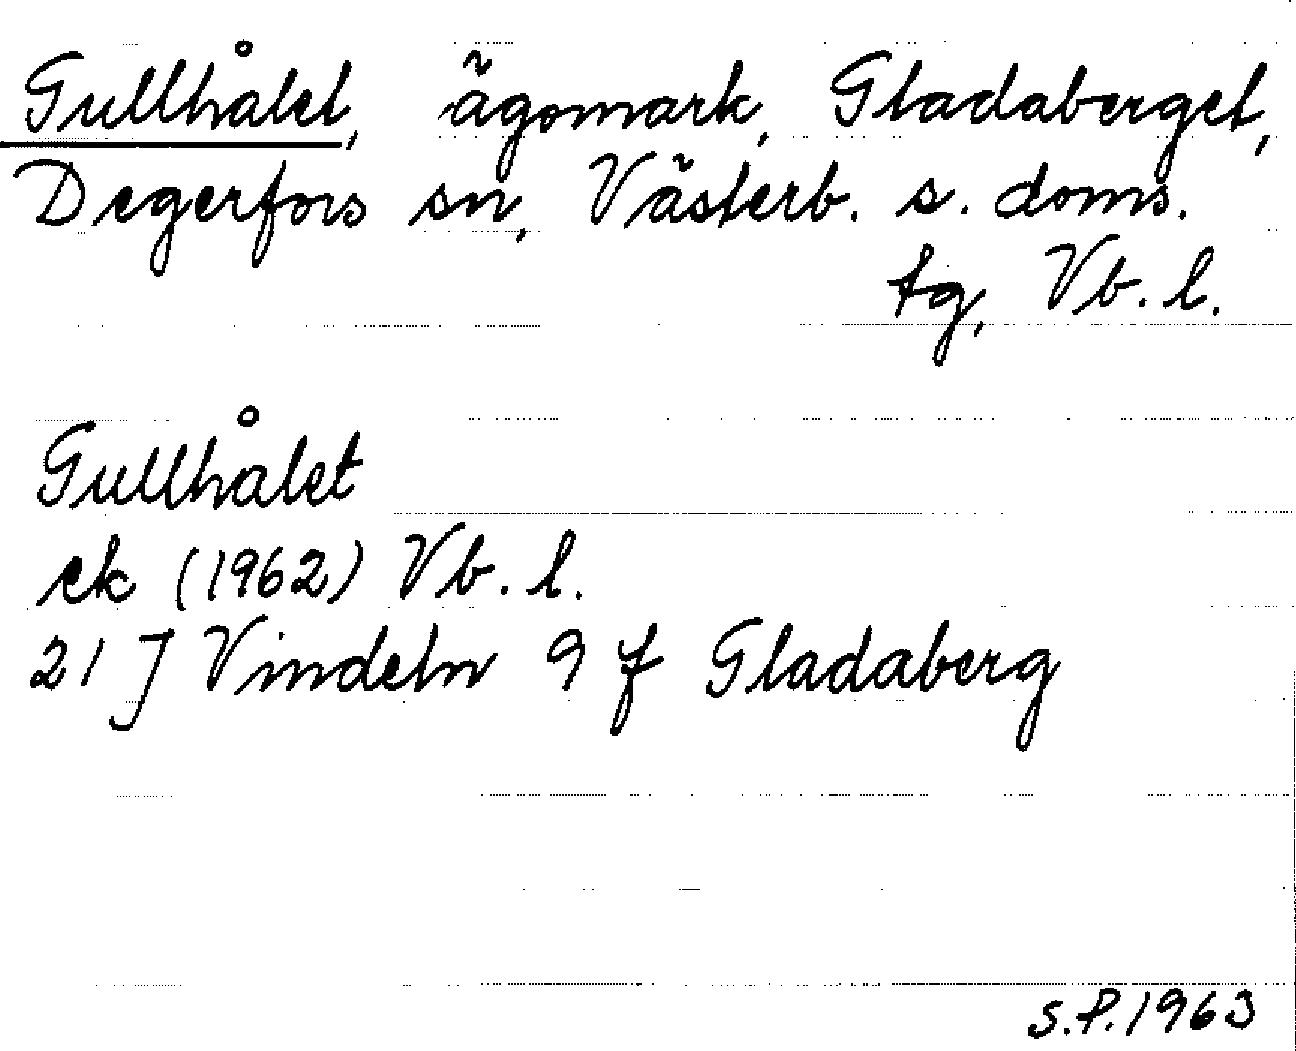 Gullhålet, ägomark, Gladaberget,
Degerfors sn, Västerb. s. doms.
tg, Vb. l.
Gullhålet
ek (1962) Vb. l.
21 J Vindeln 9 f Gladaberg
S.P. 1963